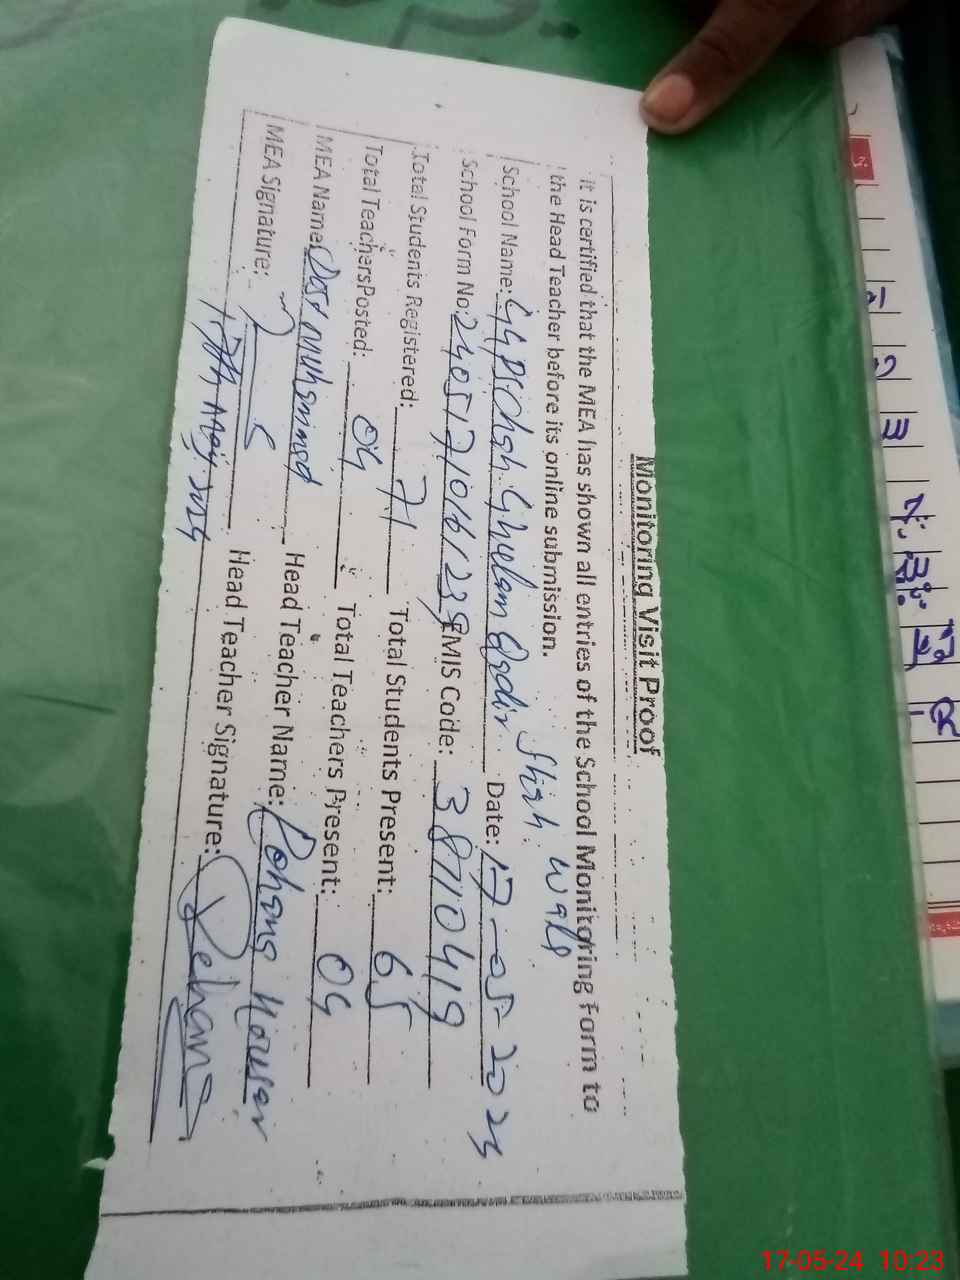 Monitoring Visit Proof
It is certified that the MEA has shown all entries of the School Monitoring Form to
the Head Teacher before its online submission.
Shah Wala
School Name: GGPS Chah Ghulam Qadir Date: 17-05-2024
School Form No: 2405171061239 EMIS Code: 38710419
Total Students Registered: 71 Total Students Present: 65
Total Teachers Posted: 04 Total Teachers Present: 04
MEA Name: Dost Muhammad Head Teacher Name: Rohana Kousar
MEA Signature: Head Teacher Signature: Rehana
17th May 2024
17-05-24 10:23